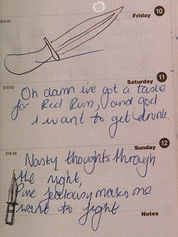 314-51
Friday 10
315-50
Saturday 11
Oh damn ive got a taste
for Red Rum, and god
I want to get drunk.
316-49
Sunday 12
Nasty thoughts through
the night,
Pure jealousy makes me
want to fight
Notes